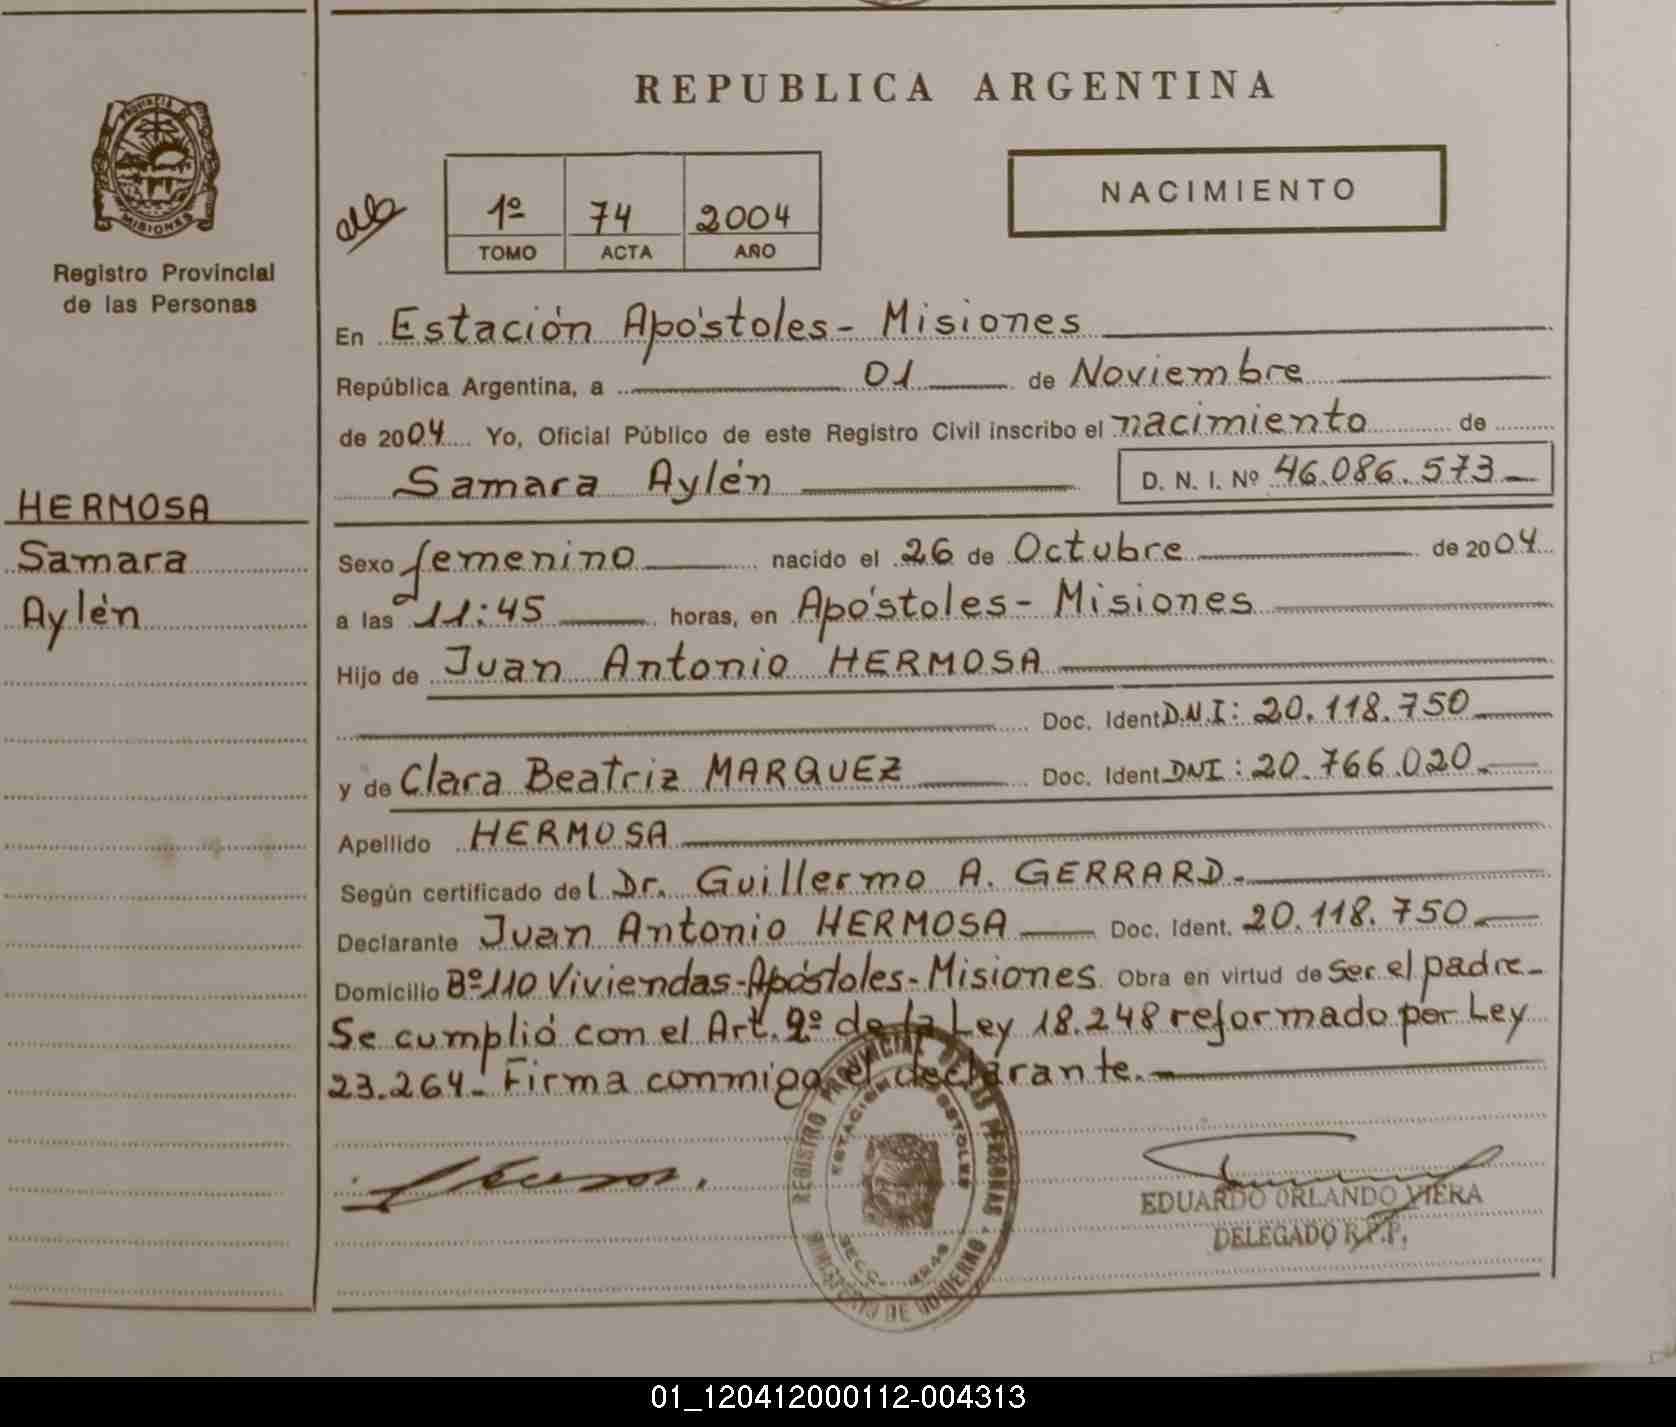 REPUBLICA ARGENTINA
PROVINCIA DE
MISIONES
Registro Provincial
de las Personas
HERMOSA
Samara
Aylén
1º 74 2004
TOMO ACTA AÑO
NACIMIENTO
En Estación Apóstoles - Misiones
República Argentina, a 01 de Noviembre
de 2004 Yo, Oficial Público de este Registro Civil inscribo el nacimiento de
Samara Aylén D. N. I. Nº 46.086.573
Sexo femenino nacido el 26 de Octubre de 2004
a las 11:45 horas, en Apóstoles - Misiones
Hijo de Juan Antonio HERMOSA
Doc. Ident D.N.I: 20.118.750
y de Clara Beatriz MARQUEZ Doc. Ident DNI: 20.766.020
Apellido HERMOSA
Según certificado del Dr. Guillermo A. GERRARD.
Declarante Juan Antonio HERMOSA Doc. Ident. 20.118.750
Domicilio Bº 110 Viviendas - Apóstoles - Misiones Obra en virtud de ser el padre.
Se cumplió con el Art. 2º de la Ley 18.248 reformado por Ley
23.264. Firma conmigo el declarante.
REGISTRO PROVINCIAL DE LAS PERSONAS
ESTACION APOSTOLES
MINISTERIO DE GOBIERNO
EDUARDO ORLANDO VIERA
DELEGADO R.P.P.
01_120412000112-004313